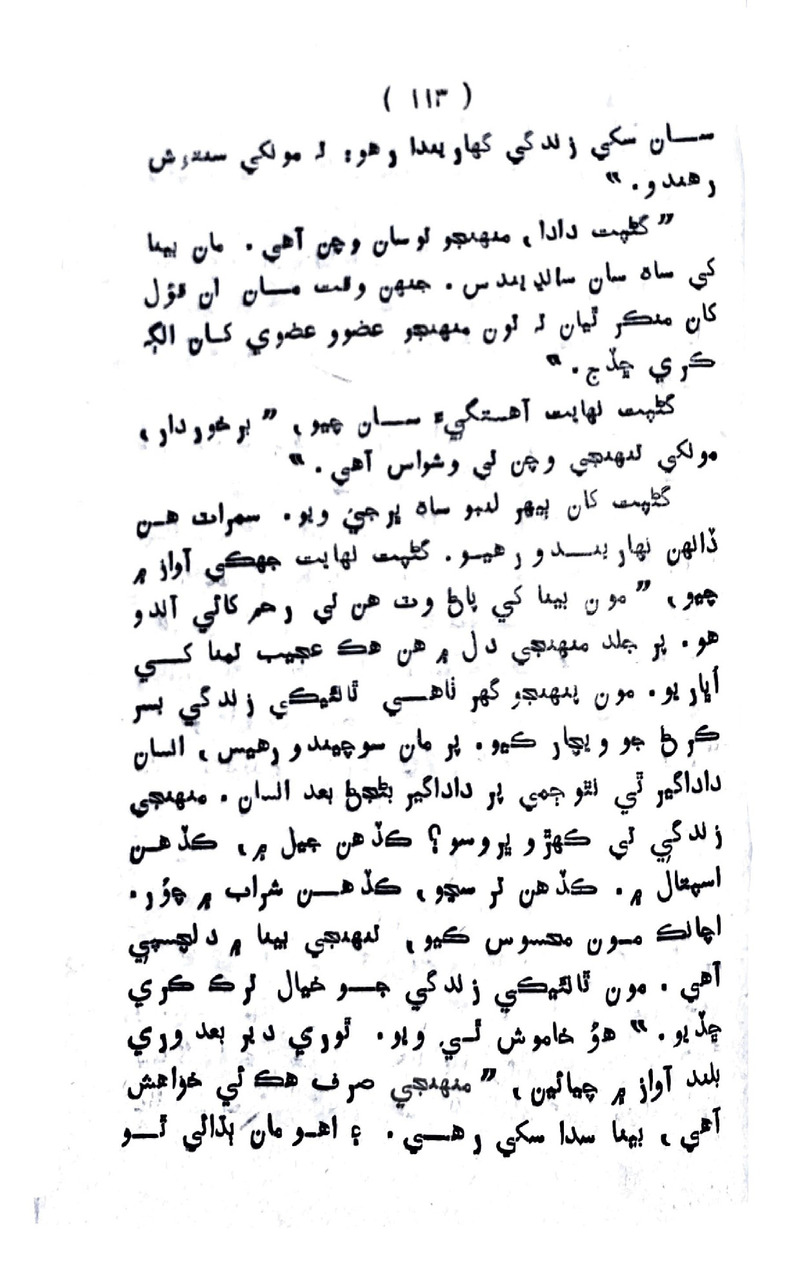 ( ١١٣ )
ســـان سکي زندگي گهاريندا رهو؛ تہ مونکي سنتوش
رهندو. “
” گڻپت دادا، منهنجو توسان وچن آهي. مان بينا
کي ساہ سان سانڍيندس. جنهن وقت مـــان ان قؤل
کان منڪر ٿيان تہ تون منهنجو عضوو عضوي کــان الڳ
ڪري ڇڏج. “
گڻپت نهايت آهستگيءَ ســـان چيو، ” برخوردار،
مونکي تنهنجي وچن تي وشواس آهي. “
گڻپت کان ٻيهر لنبو ساہ ڀرجي ويو. سمرات هــن
ڏانهن نهاريـنـــدو رهيـو. گڻپت نهايت جهڪي آواز ۾
چيو، ” مون بينا کي پاڻ وٽ هن تي رحم کائي آندو
هو. پر جلد منهنجي دل ۾ هن هڪ عجيب تمنا کـــي
اُڀاريو. مون پنهنجو گهر ٺاهـــي ٿانئيڪي زندگي بسر
ڪرڻ جو ويچار ڪيو. پر مان سوچيندو رهيس، انسان
داداگير ٿي نٿو ڄمي پر داداگير بڻجڻ بعد انسان. منهنجي
زندگي تي ڪهڙو ڀروسو؟ ڪڏهن جيل ۾، ڪڏهــن
اسپتال ۾. ڪڏهن ترسجو، ڪڏهـــن شراب ۾ چوُر.
اچانڪ مــون محسوس ڪيو، تنهنجي بينا ۾ دلچسپي
آهي. مون ٿانئيڪي زندگي جـــو خيال ترڪ ڪري
ڇڏيو. “ هوُ خاموش ٿــي ويو. ٿوري دير بعد وري
بلند آواز ۾ چيائين، ” منهنجي صرف هڪ ئي خواهش
آهي، بينا سدا سکي رهـــي. ۽ اهــو مان ٻڌائي ٿـــو